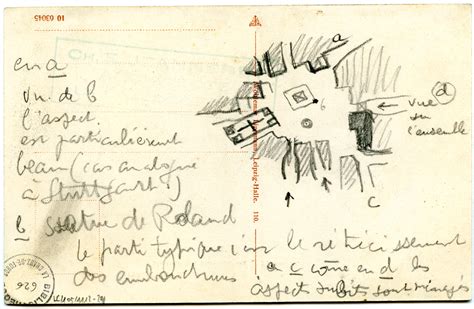 10 63045
en a
vu de b
l'aspect
est particulièrement
beau (cas analogue
à Stuttgart)
b statue de Roland
le parti typique avec le rétrécissement
des embouchures
a c comme en d les
aspects subits sont ménagés
a
b
d
vue
sur
l'ensemble
c
Leipzig-Halle. 110.
626